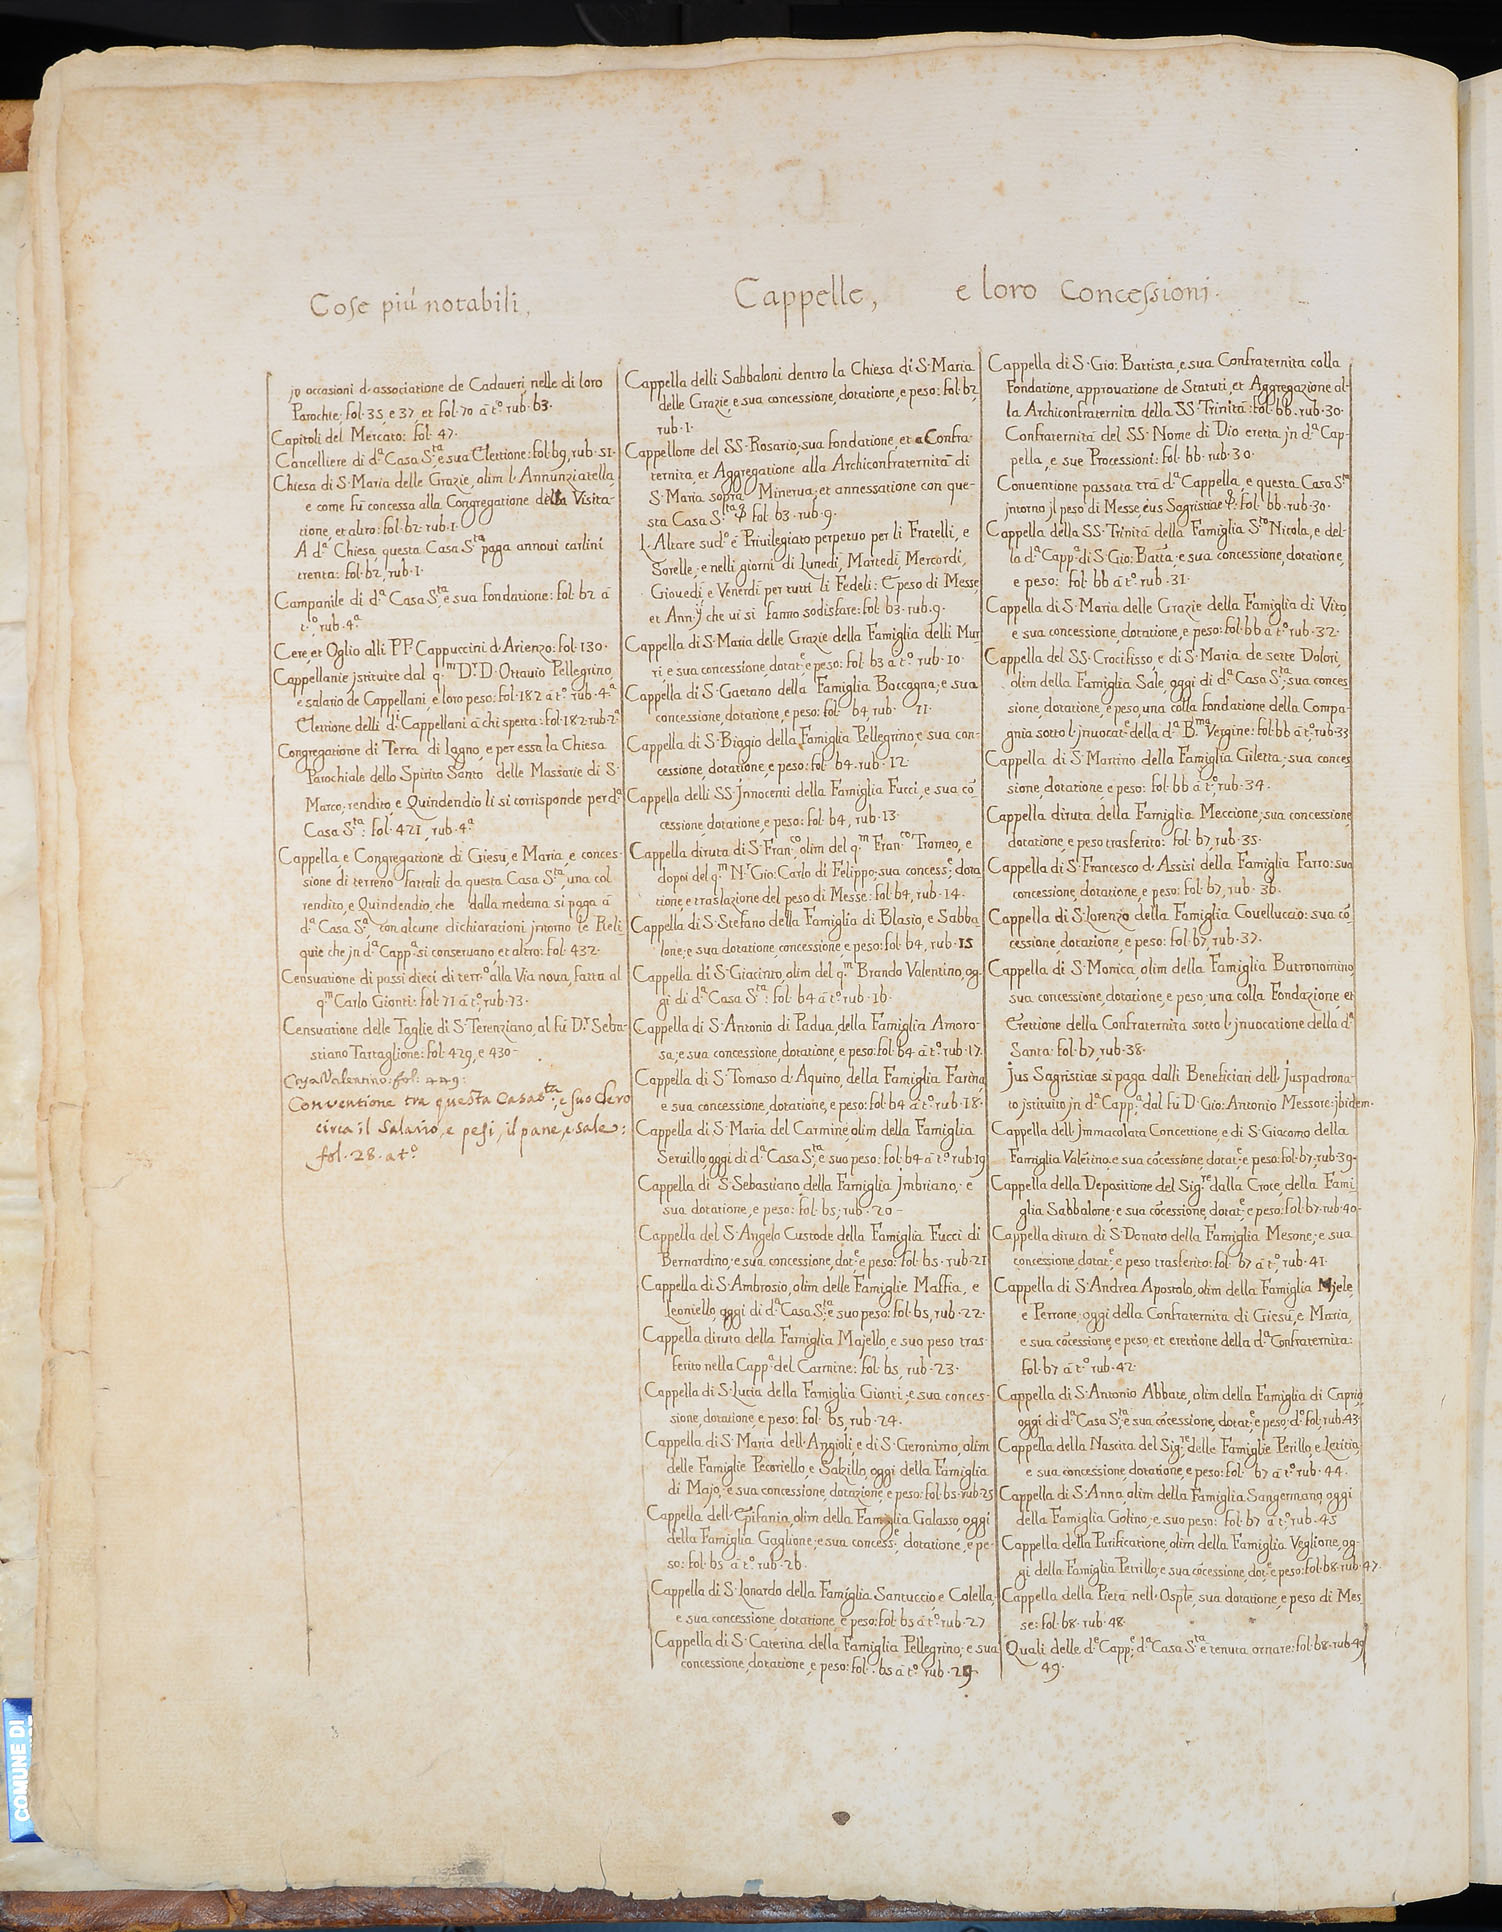 Cose più notabili,
Cappelle, e loro Concessioni.
jn occasioni d'associatione de Cadaveri nelle di loro
Parochie; fol. 35, e 37, et fol. 70 à t.º rub. 63.
Capitoli del Mercato: fol. 47.
Cancelliere di d.ª Casa S.ta, e sua Elettione: fol. 69, rub. 51.
Chiesa di S. Maria delle Grazie, olim l'Annunziatella,
e come fù concessa alla Congregatione della Visita-
tione, et altro: fol. 62. rub. 1.
A d.ª Chiesa questa Casa S.ta paga annoui carlini
trenta: fol. 62, rub. 1.
Campanile di d.ª Casa S.ta, e sua fondatione: fol. 62 à
t.º, rub. 4.ª
Cere, et Oglio alli PP. Cappuccini d'Arienzo: fol. 130.
Cappellanie jstituite dal q.m D.r D. Ottauio Pellegrino,
e salario de Cappellani, e loro peso: fol. 182 à t.º rub. 4.ª
Elettione delli d.i Cappellani à chi spetta: fol. 182. rub. 2.ª
Congregatione di Terra di Lagno, e per essa la Chiesa
Parochiale dello Spirito Santo delle Massarie di S.
Marco; rendito, e Quindendio li si corrisponde per d.ª
Casa S.ta: fol. 421, rub. 4.ª
Cappella e Congregatione di Giesù, e Maria, e conces-
sione di terreno fattali da questa Casa S.ta, una col
rendito, e Quindendio, che dalla medema si paga à
d.ª Casa S.ª, con alcune dichiarationi jntorno le Reli-
quie che jn d.ª Capp.ª si conseruano, et altro: fol. 432.
Censuatione di passi dieci di terr.º alla Via noua, fatta al
q.m Carlo Gionti: fol. 71 à t.º, rub. 73.
Censuatione delle Taglie di S. Terenziano, al fù D.r Seba-
stiano Tartaglione: fol. 429, e 430-
Valentino: fol. 449:
Conventione tra questa Casa S.ta, e suo Clero
circa il salario, e pesi, il pane, e sale:
fol. 28. a t.º
Cappella delli Sabbaloni dentro la Chiesa di S. Maria
delle Grazie, e sua concessione, dotatione, e peso: fol. 62,
rub. 1.
Cappellone del SS. Rosario; sua fondatione, et Confra-
ternita, et Aggregatione alla Archiconfraternità di
S. Maria sopra Minerua; et annessatione con que-
sta Casa S.ta & fol. 63. rub. 9.
L'Altare sud.º è Priuilegiato perpetuo per li Fratelli, e
Sorelle; e nelli giorni di Lunedì, Martedì, Mercordì,
Giouedì, e Venerdì per tutti li Fedeli: E peso di Messe,
et Ann.ij che ui si fanno sodisfare: fol. 63. rub. 9.
Cappella di S. Maria delle Grazie della Famiglia delli Mur-
ri, e sua concessione, dotat.e, e peso: fol. 63 à t.º rub. 10.
Cappella di S. Gaetano della Famiglia Boccagna; e sua
concessione, dotatione, e peso: fol. 64, rub. 11.
Cappella di S. Biagio della Famiglia Pellegrino, e sua con-
cessione, dotatione, e peso: fol. 64. rub. 12
Cappella delli SS. Jnnocenti della Famiglia Fucci, e sua cõ-
cessione, dotatione, e peso: fol. 64, rub. 13.
Cappella diruta di S. Fran.co, olim del q.m Fran.co Tromeo, e
dopoi del q.m N.r Gio: Carlo di Felippo; sua concess.e; dota
tione, e traslazione del peso di Messe: fol. 64, rub. 14.
Cappella di S. Stefano della Famiglia di Blasio, e Sabba-
lone; e sua dotatione, concessione, e peso: fol. 64, rub. 15
Cappella di S. Giacinto, olim del q.m Brando Valentino, og-
gi di d.ª Casa S.ta: fol. 64 à t.º rub. 16.
Cappella di S. Antonio di Padua, della Famiglia Amoro-
sa; e sua concessione, dotatione, e peso: fol. 64 à t.º rub. 17.
Cappella di S. Tomaso d'Aquino, della Famiglia Farina,
e sua concessione, dotatione, e peso: fol. 64 à t.º rub. 18.
Cappella di S. Maria del Carmine, olim della Famiglia
Seruillo, oggi di d.ª Casa S.ta, e suo peso: fol. 64 à t.º rub. 19
Cappella di S. Sebastiano della Famiglia Jmbriano; e
sua dotatione, e peso: fol. 65; rub. 20-
Cappella del S. Angelo Custode della Famiglia Fucci di
Bernardino; e sua concessione, dot.e, e peso: fol. 65. rub. 21
Cappella di S. Ambrosio, olim delle Famiglie Maffia, e
Leoniello, oggi di d.ª Casa S.ta, e suo peso: fol. 65, rub. 22.
Cappella diruta della Famiglia Majello, e suo peso tras-
ferito nella Capp.ª del Carmine: fol. 65, rub. 23.
Cappella di S. Lucia della Famiglia Gionti; e sua conces-
sione, dotatione, e peso: fol. 65, rub. 24.
Cappella di S. Maria dell'Angioli, e di S. Geronimo, olim
delle Famiglie Pecoriello, e Salzillo, oggi della Famiglia
di Majo; e sua concessione, dotazione, e peso: fol. 65. rub. 25
Cappella dell'Epifania, olim della Famiglia Galasso, oggi
della Famiglia Gaglione; e sua concess.e, dotatione, e pe-
so: fol. 65 à t.º rub. 26.
Cappella di S. Lonardo della Famiglia Santuccio, e Colella;
e sua concessione, dotatione, e peso: fol. 65 à t.º rub. 27
Cappella di S. Caterina della Famiglia Pellegrino; e sua
concessione, dotatione, e peso: fol. 65 à t.º rub. 29.
Cappella di S. Gio: Battista, e sua Confraternita colla
Fondatione, approuatione de Statuti, et Aggregazione al-
la Archiconfraternita della SS. Trinità: fol. 66. rub. 30.
Confraternità del SS. Nome di Dio eretta jn d.ª Cap-
pella, e sue Processioni: fol. 66. rub. 30.
Conuentione passata trà d.ª Cappella, e questa Casa S.ta
jntorno jl peso di Messe, eius Sagristiae &: fol. 66. rub. 30.
Cappella della SS. Trinità della Famiglia S.to Nicola, e del-
la d.ª Capp.ª di S. Gio: Batta, e sua concessione, dotatione,
e peso: fol. 66 à t.º rub. 31.
Cappella di S. Maria delle Grazie della Famiglia di Vito,
e sua concessione, dotatione, e peso: fol. 66 à t.º rub. 32.
Cappella del SS. Crocifisso, e di S. Maria de sette Dolori,
olim della Famiglia Sale, oggi di d.ª Casa S.ta; sua conces-
sione, dotatione, e peso, una colla fondatione della Compa-
gnia sotto l'jnuocat.e della d.ª B.ma Vergine: fol. 66 à t.º, rub. 33
Cappella di S. Martino della Famiglia Giletta; sua conces-
sione, dotatione, e peso: fol. 66 à t.º, rub. 34.
Cappella diruta della Famiglia Meccione; sua concessione,
dotatione, e peso trasferito: fol. 67, rub. 35.
Cappella di S. Francesco d'Assisi della Famiglia Farro: sua
concessione, dotatione, e peso: fol. 67, rub. 36.
Cappella di S. Lorenzo della Famiglia Couelluccio: sua cõ-
cessione, dotatione, e peso: fol. 67, rub. 37.
Cappella di S. Monica, olim della Famiglia Buttonomino,
sua concessione, dotatione, e peso, una colla Fondazione, et
Erettione della Confraternita sotto l'jnuocatione della d.ª
Santa: fol. 67, rub. 38.
jus Sagristiae si paga dalli Beneficiati dell'Juspadrona-
to jstituito jn d.ª Capp.ª dal fù D. Gio: Antonio Messore: jbidem.
Cappella dell'Jmmacolata Concettione, e di S. Giacomo della
Famiglia Valẽtino; e sua cõcessione, dotat.e, e peso: fol. 67, rub. 39.
Cappella della Depositione del Sig.re dalla Croce, della Fami-
glia Sabbalone; e sua cõcessione, dotat.e, e peso: fol. 67. rub. 40.
Cappella diruta di S. Donato della Famiglia Mesone; e sua
concessione, dotat.e, e peso trasferito: fol. 67 à t.º, rub. 41.
Cappella di S. Andrea Apostolo, olim della Famiglia Mjele,
e Perrone; oggi della Confraternita di Giesù, e Maria,
e sua cõcessione, e peso, et erettione della d.ª Confraternita:
fol. 67 à t.º rub. 42.
Cappella di S. Antonio Abbate, olim della Famiglia di Caprio,
oggi di d.ª Casa S.ta, e sua cõcessione, dotat.e, e peso; d.º fol, rub. 43.
Cappella della Nascita del Sig.re, delle Famiglie Perillo, e Letitia,
e sua concessione, dotatione, e peso: fol. 67 à t.º rub. 44.
Cappella di S. Anna, olim della Famiglia Sangermano, oggi
della Famiglia Golino; e suo peso: fol. 67 à t.º, rub. 45
Cappella della Purificatione, olim della Famiglia Veglione, og-
gi della Famiglia Petrillo; e sua cõcessione, dot.e, e peso: fol. 68. rub. 47.
Cappella della Pietà nell'Osple, sua dotatione, e peso di Mes
se: fol. 68. rub. 48.
Quali delle d.e Capp.e, d.ª Casa S.ta è tenuta ornare: fol. 68. rub. 49
49.
COMUNE DI